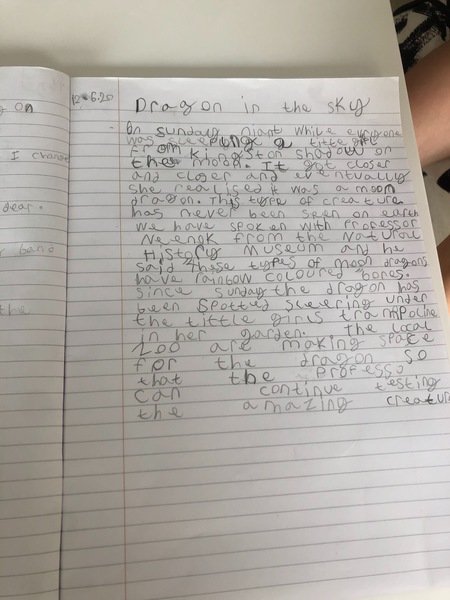 12.6.20
Dragon in the sky
On sunday night while everyone
was sleeping a little girl
from Kingston shadow on
the moon. It got closer
and closer and eventually
she realised it was a moon
dragon. This type of creature
has never been seen on earth
we have spoken with Professor
Neenok from the Natural
History Museum and he
said these types of moon dragons
have rainbow coloured bones.
Since sunday the dragon has
been spotted sleering under
the little girls trampoline
in her garden. The local
zoo are making space
for the dragon so
that the Professo
can continue testing
the amazing creatur
on
I
dear.
the